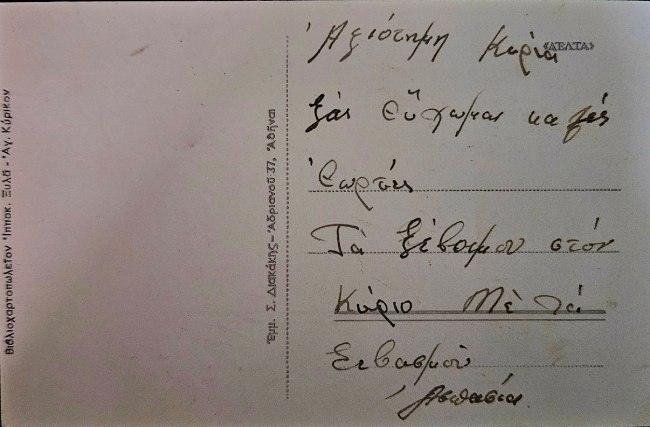 Ἀξιότημη Κυρία
«ΔΕΛΤΑ»
Σᾶς Εὔχωμαι καλές
Ἑωρτές
Τὰ Σέβαμου στόν
Κύριο Μὲ τά
Σεβασμού
Ἀσπασία
Ἐμμ. Σ. Διακάκης - Ἀδριανοῦ 37, Ἀθῆναι
Βιβλιοχαρτοπωλεῖον Ἱπποκ. Ξυλᾶ - Ἁγ. Κύρικον